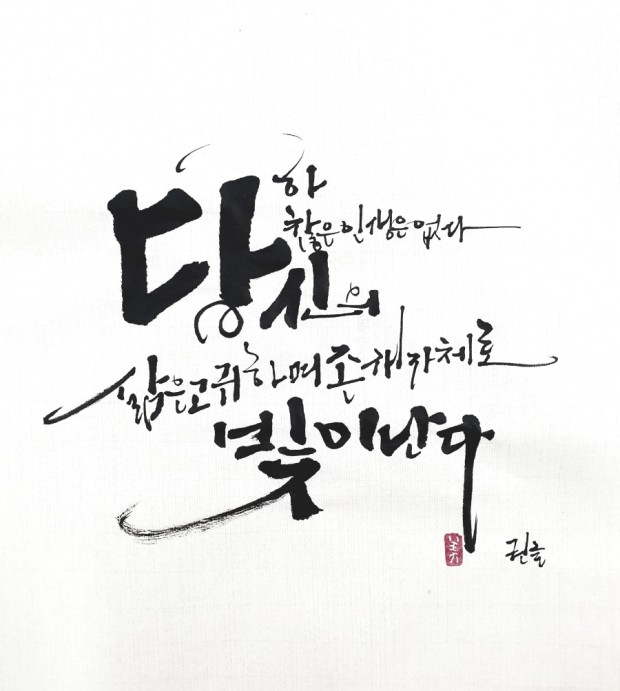 하
찮은 인생은 없다
당신의
삶은 고귀하며 존재 자체로
빛이 난다